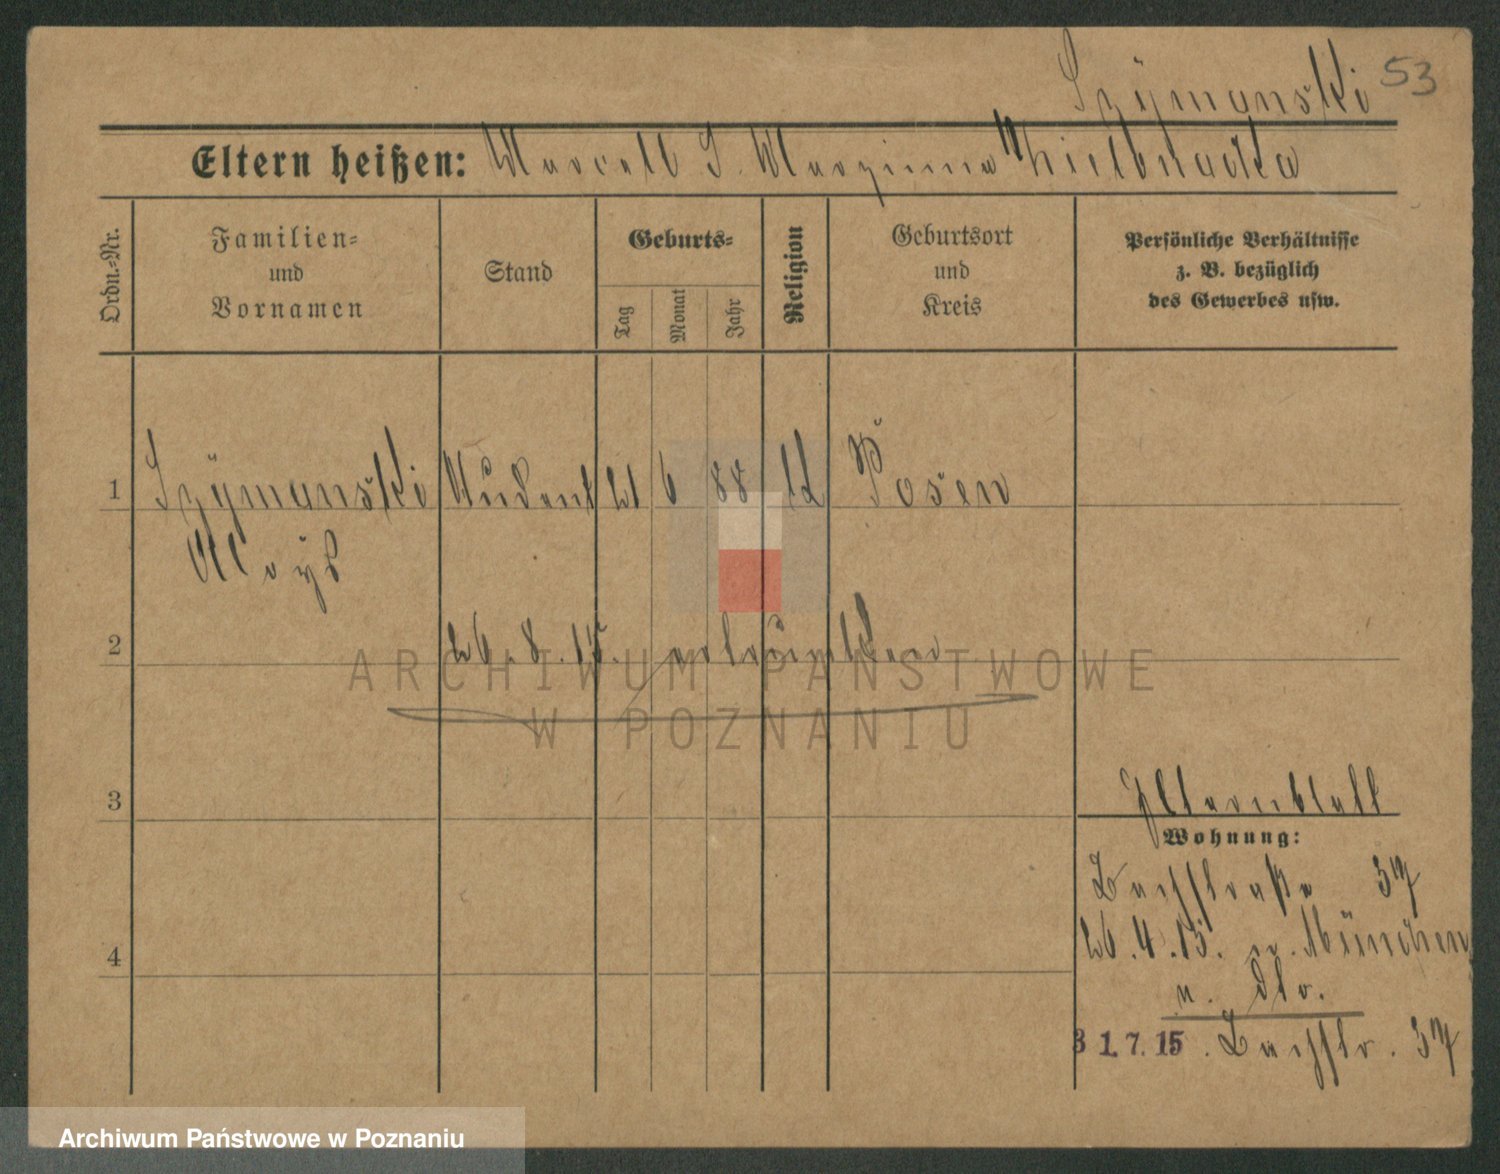 Szymanski 53
Eltern heißen: Marcell S. Marzinna Kielbnadka
Ordn.-Nr.
Familien-
und
Vornamen
Stand
Geburts-
Tag
Monat
Jahr
Religion
Geburtsort
und
Kreis
Persönliche Verhältnisse
z. B. bezüglich
des Gewerbes usw.
1 Szymanski Student 21 6 88 kt Posen
Aloys
2 26.8.15. ertrunken
3
Elternblatt
Wohnung:
Bachstraße 37
26.4.15. v. München
4
n. dto.
31.7.15. Bachstr. 37
ARCHIWUM PAŃSTWOWE
W POZNANIU
Archiwum Państwowe w Poznaniu